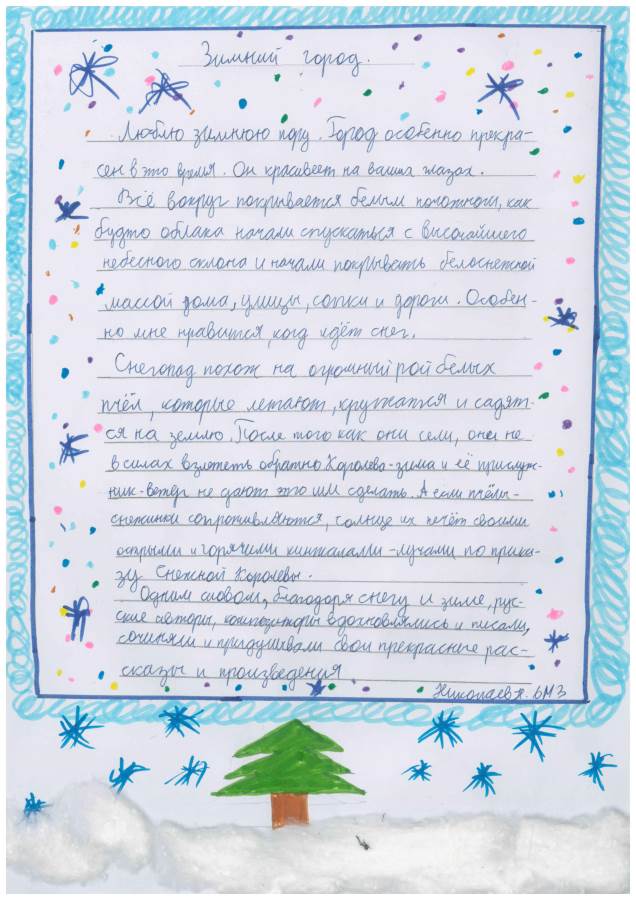 Зимний город.
Люблю зимнюю пору. Город особенно прекра-
сен в это время. Он красивеет на ваших глазах.
Всё вокруг покрывается белым полотном, как
будто облака начали спускаться с высочайшего
небесного склона и начали покрывать белоснежной
массой дома, улицы, сопки и дороги. Особен-
но мне нравится, когд идёт снег.
Снегопад похож на огромный рой белых
пчёл, которые летают, кружатся и садят-
ся на землю. После того как они сели, они не
в силах взлететь обратно Королева-зима и её прислуж-
ник-ветер не дают это им сделать. А если пчёлы-
снежинки сопротивляются, солнце их печёт своими
острыми и горячими кинжалами-лучами по прика-
зу Снежной Королевы.
Одним словом, благодаря снегу и зиме, рус-
ские авторы, композиторы вдохновлялись и писали,
сочиняли и придумывали свои прекрасные рас-
сказы и произведения
Николаев Я. 6М3